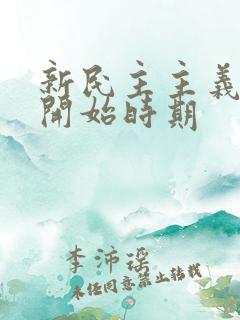 新民主主義
開始時期
李沛瑶
未任同意禁止转载